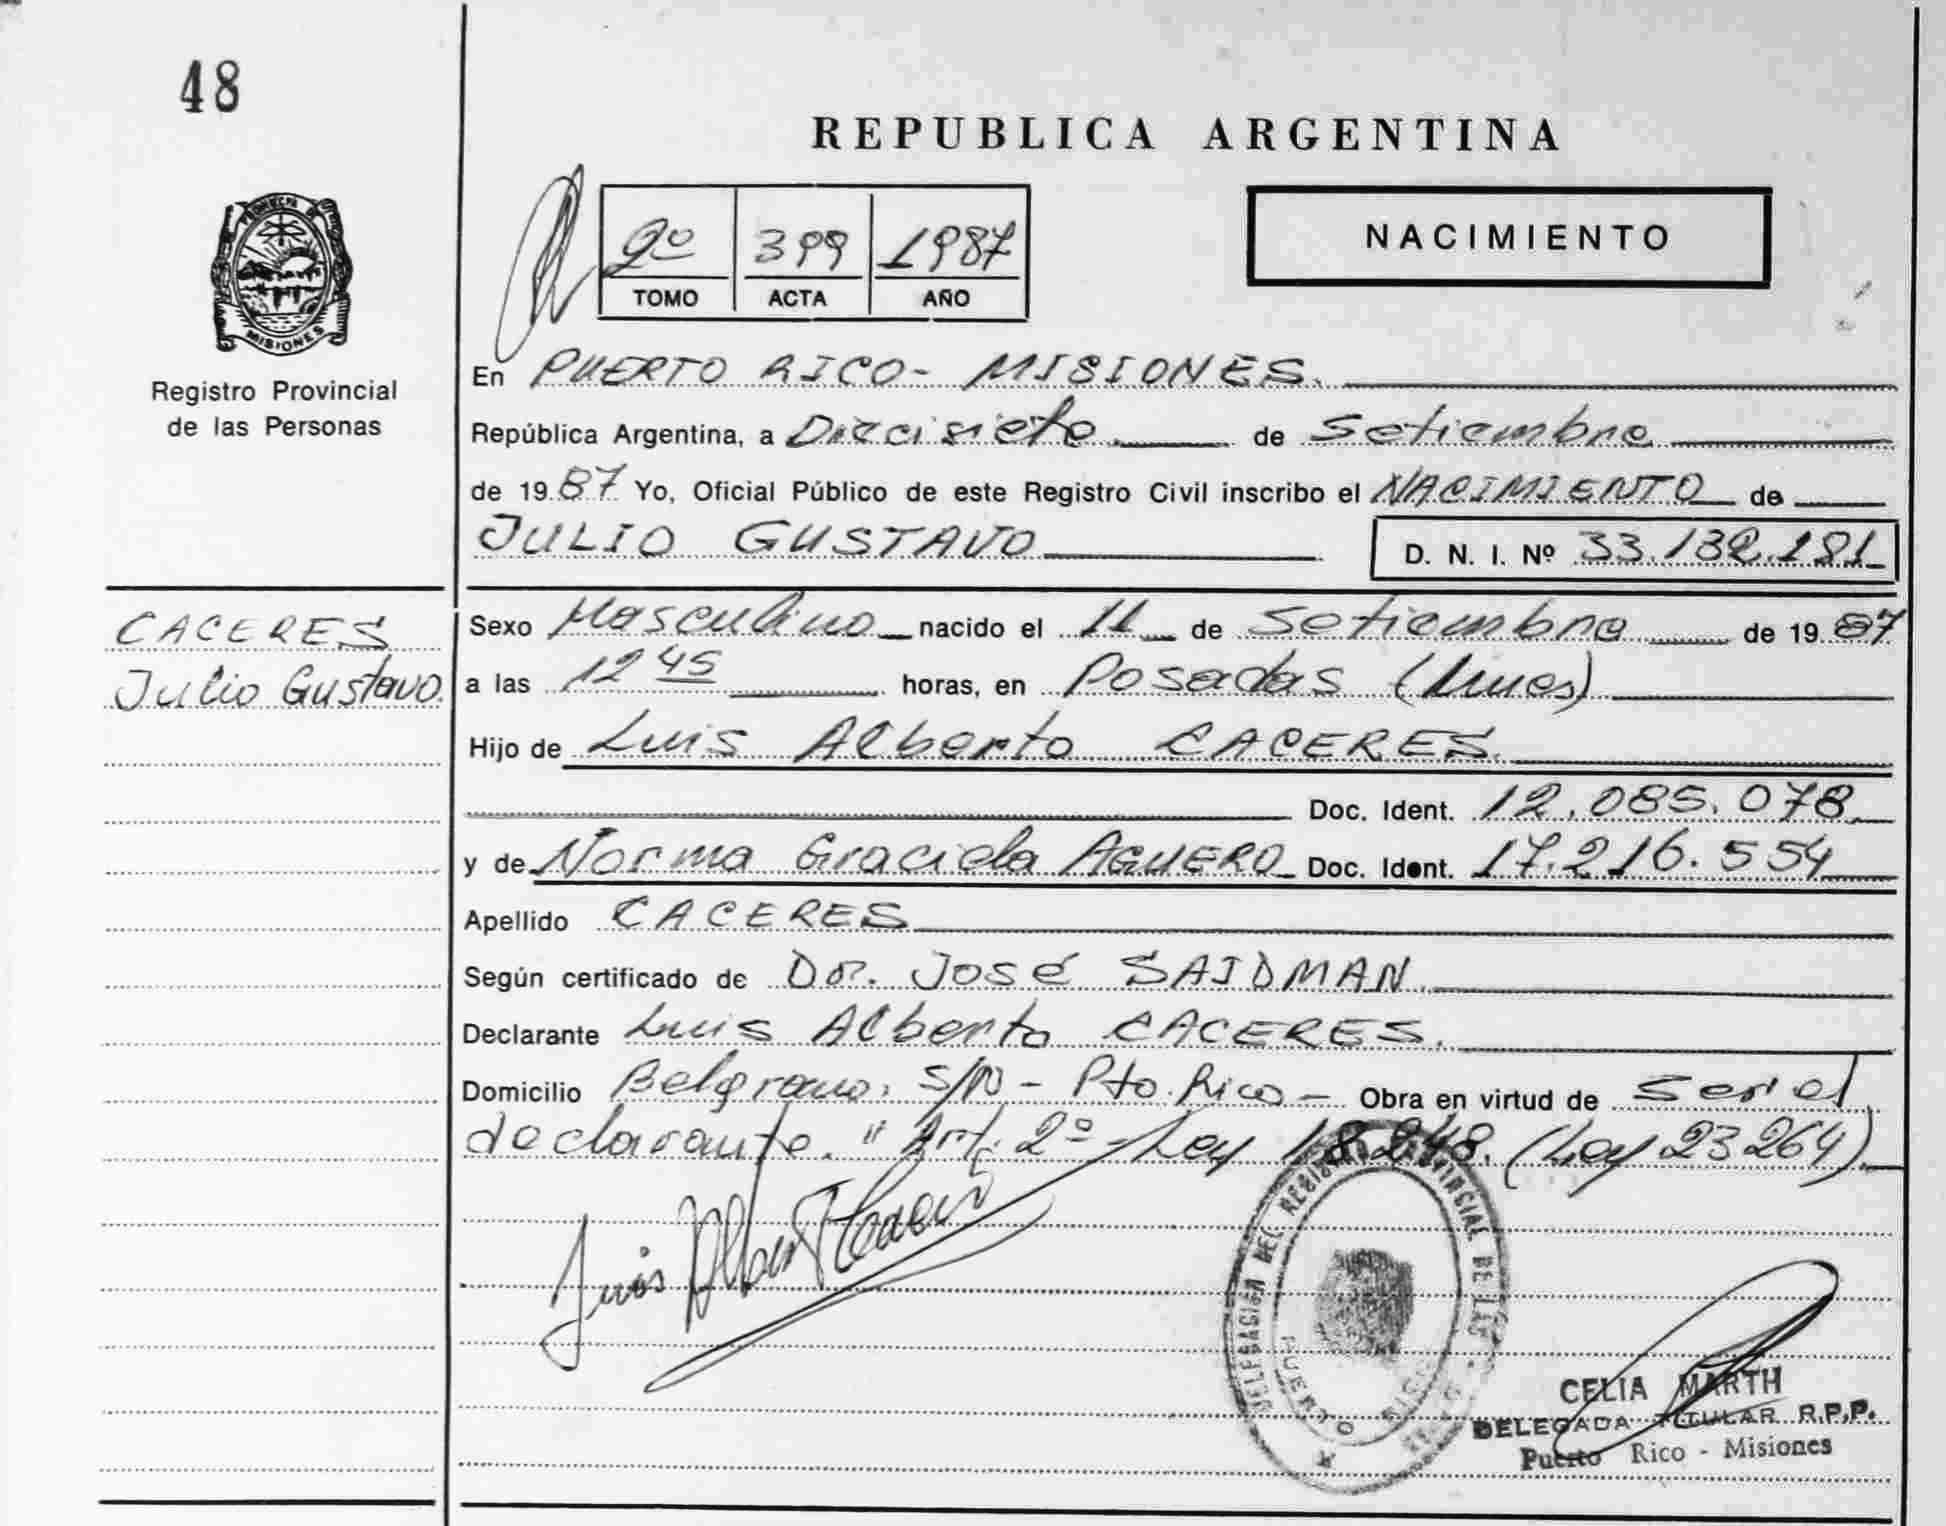 48
REPUBLICA ARGENTINA
PROVINCIA DE
MISIONES
2º 399 1987
TOMO ACTA AÑO
NACIMIENTO
Registro Provincial
de las Personas
En PUERTO RICO- MISIONES.
República Argentina, a Diecisiete de Setiembre
de 1987 Yo, Oficial Público de este Registro Civil inscribo el NACIMIENTO de
JULIO GUSTAVO D. N. I. Nº 33.132.181
CACERES
Julio Gustavo.
Sexo Masculino nacido el 11 de Setiembre de 1987
a las 12 45 horas, en Posadas (Mnes)
Hijo de Luis Alberto CACERES.
Doc. Ident. 12.085.078
y de Norma Graciela AGUERO Doc. Ident. 17.216.554
Apellido CACERES
Según certificado de Dr. José SAIDMAN.
Declarante Luis Alberto CACERES.
Domicilio Belgrano. S/N - Pto. Rico - Obra en virtud de ser el
declarante. " Art. 2º - Ley 18.248. (Ley 23264)
Luis Alberto Caceres
DELEGACION DEL REGISTRO PROVINCIAL DE LAS
PUERTO RICO
CELIA MARTH
DELEGADA TITULAR R.P.P.
Puerto Rico - Misiones